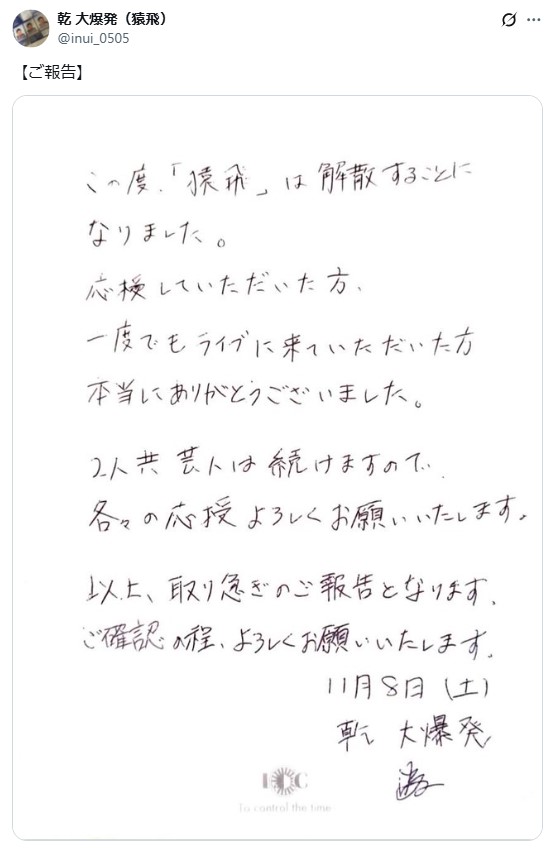 乾 大爆発（猿飛）
@inui_0505
【ご報告】
この度、「猿飛」は解散することに
なりました。
応援していただいた方、
一度でもライブに来ていただいた方
本当にありがとうございました。
2人共芸人は続けますので、
各々の応援よろしくお願いいたします。
以上、取り急ぎのご報告となります。
ご確認の程、よろしくお願いいたします。
11月8日（土）
乾 大爆発
To control the time